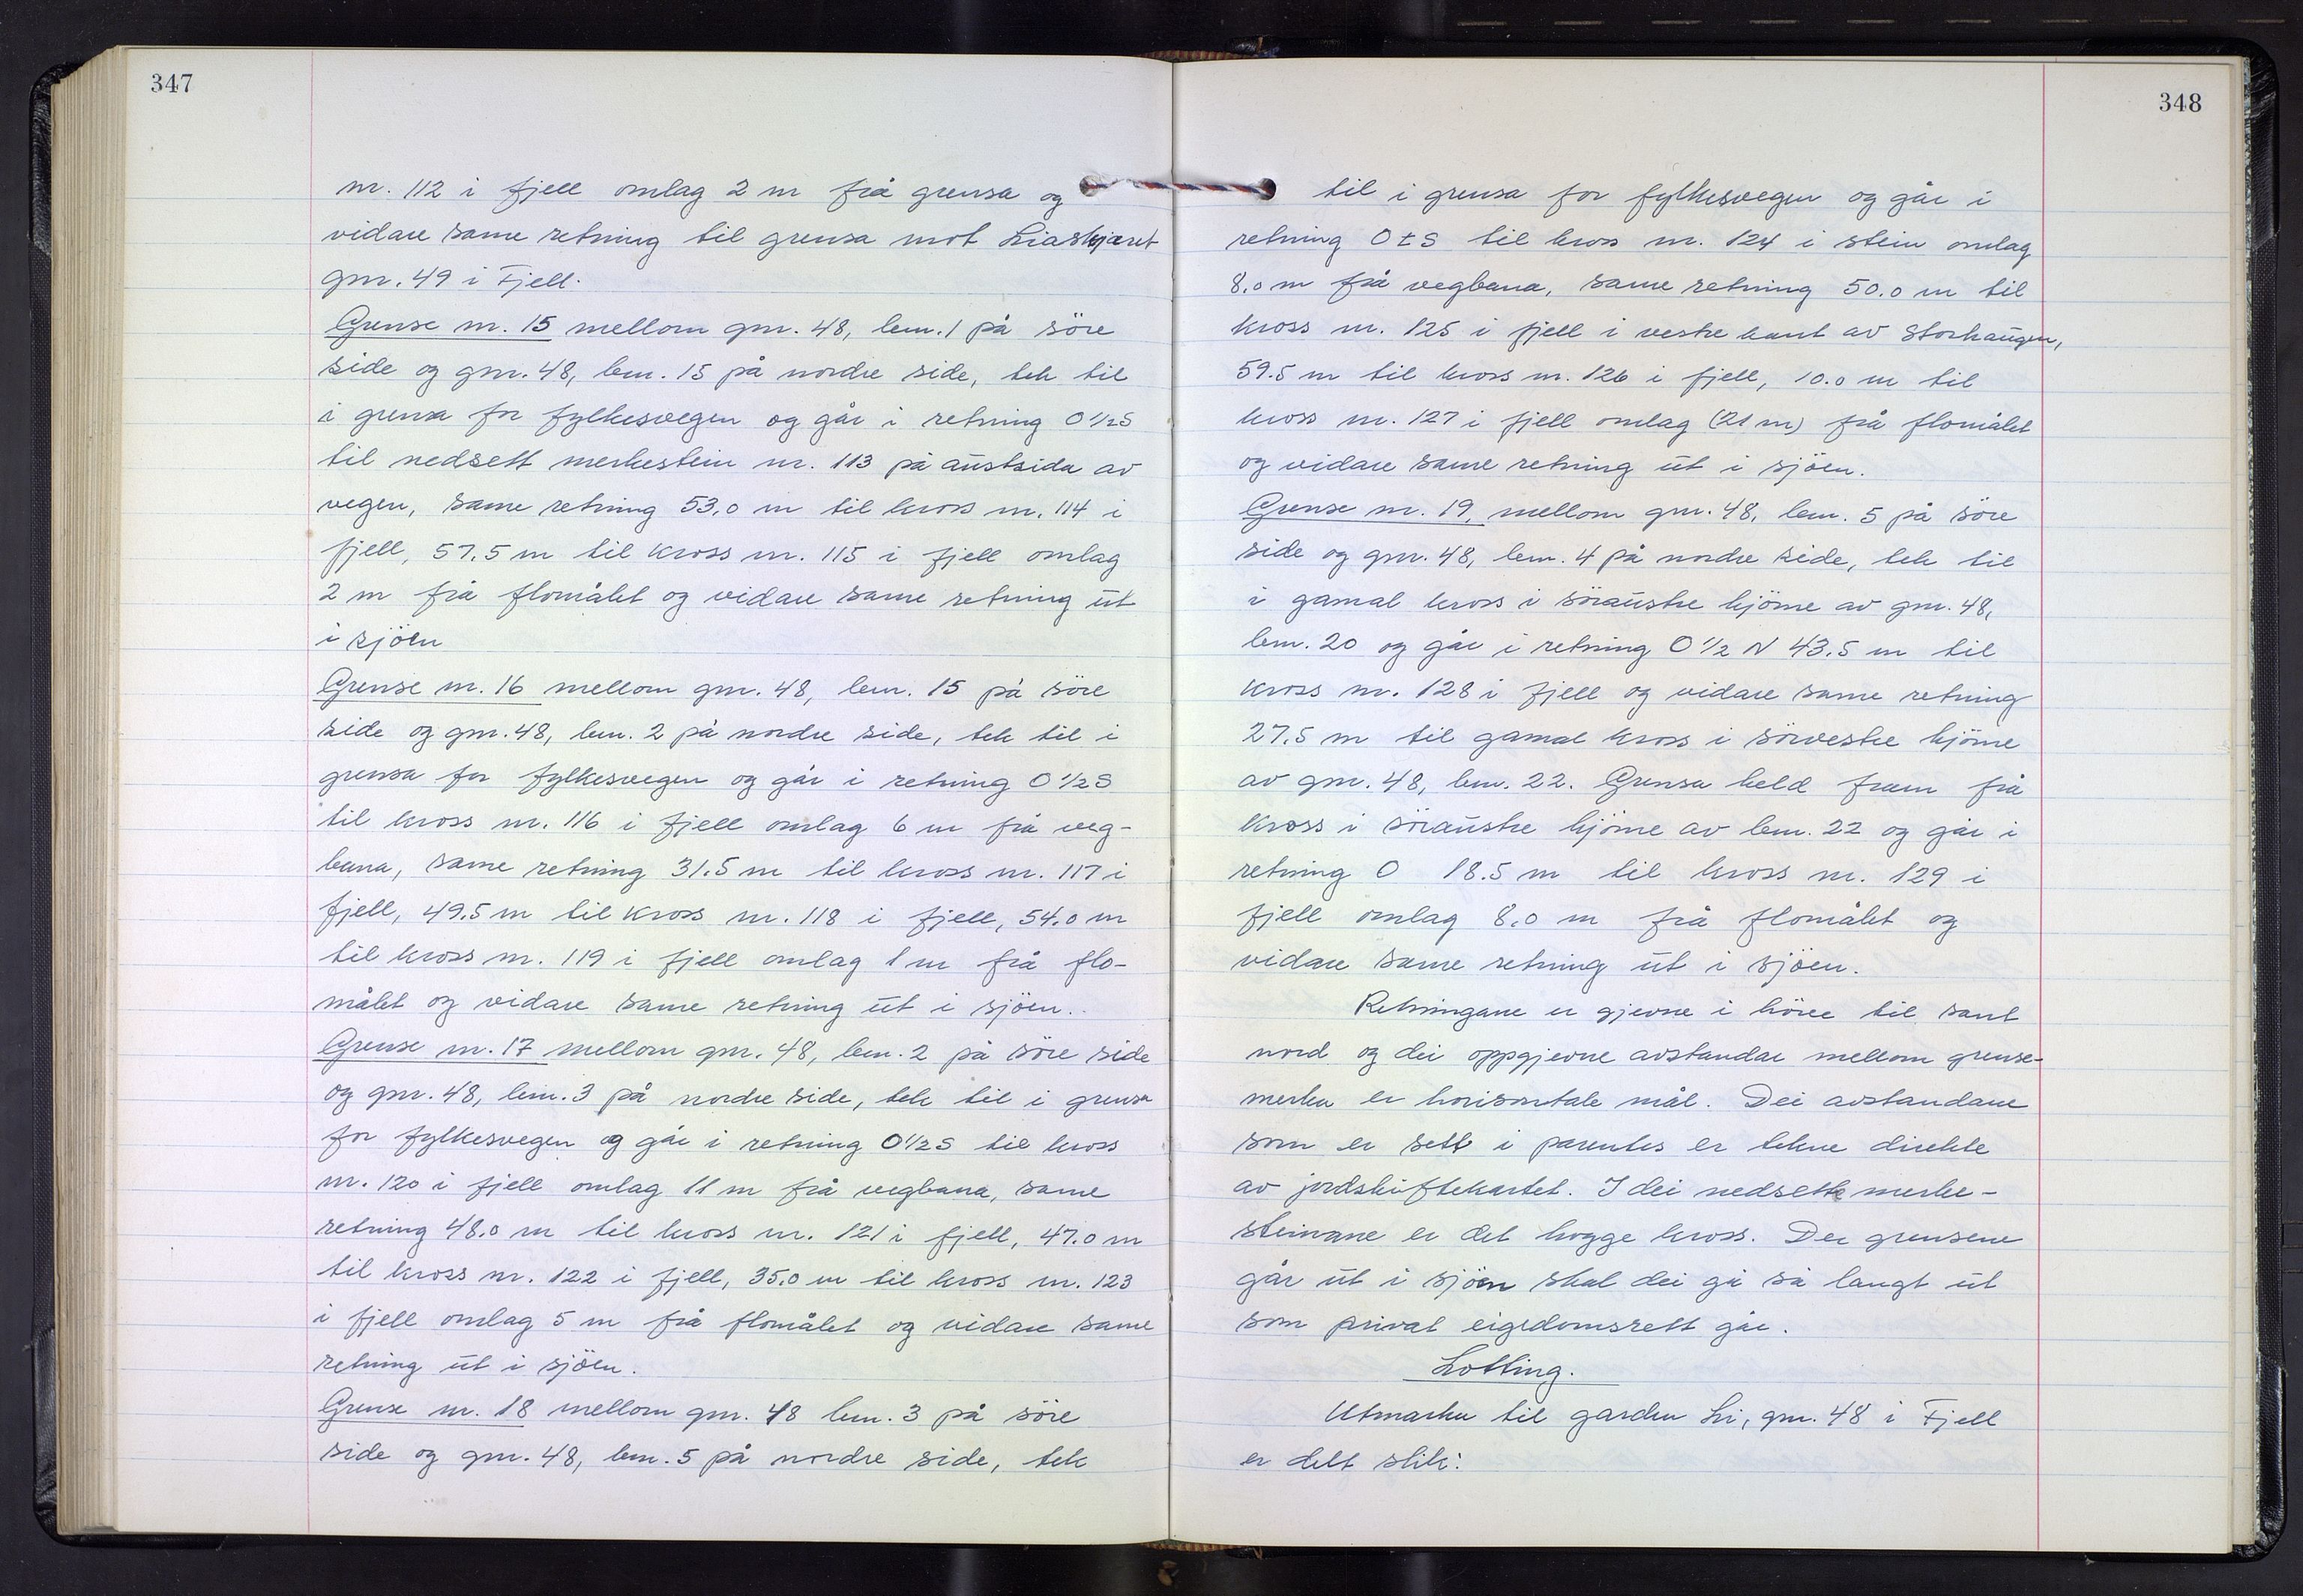 347
nr. 112 i fjell omlag 2 m frå grensa og
vidare same retning til grensa mot Liaskjæret
gnr. 49 i Fjell.
Grense nr. 15 mellom gnr. 48, bnr. 1 på söre
side og gnr. 48, bnr. 15 på nordre side, tek til
i grensa for fylkesvegen og går i retning O 1/2 S
til nedsett merkestein nr. 113 på austsida av
vegen, same retning 53,0 m til kross nr. 114 i
fjell, 57.5 m til kross nr. 115 i fjell omlag
2 m frå flomålet og vidare same retning ut
i sjöen
Grense nr. 16 mellom gnr. 48, bnr. 15 på söre
side og gnr. 48, bnr. 2 på nordre side, tek til i
grensa for fylkesvegen og går i retning O 1/2 S
til kross nr. 116 i fjell omlag 6 m frå veg-
bana, same retning 31.5 m til kross nr. 117 i
fjell, 49.5 m til kross nr. 118 i fjell, 54.0 m
til kross nr. 119 i fjell omlag 1 m frå flo-
målet og vidare same retning ut i sjöen.
Grense nr. 17 mellom gnr. 48, bnr. 2 på söre side
og gnr. 48, bnr. 3 på nordre side, tek til i grensa
for fylkesvegen og går i retning O 1/2 S til kross
nr. 120 i fjell omlag 11 m frå vegbana, same
retning 48.0 m til kross nr. 121 i fjell, 47.0 m
til kross nr. 122 i fjell, 35.0 m til kross nr. 123
i fjell omlag 5 m frå flomålet og vidare same
retning ut i sjöen.
Grense nr. 18 mellom gnr. 48 bnr. 3 på söre
side og gnr. 48, bnr. 5 på nordre side, tek
348
til i grensa for fylkesvegen og går i
retning O t S til kross nr. 124 i stein omlag
8.0 m frå vegbana, same retning 50.0 m til
kross nr. 125 i fjell i vestre kant av Storhaugen,
59.5 m til kross nr. 126 i fjell, 10.0 m til
kross nr. 127 i fjell omlag (21 m) frå flomålet
og vidare same retning ut i sjöen.
Grense nr. 19, mellom gnr. 48, bnr. 5 på söre
side og gnr. 48, bnr. 4 på nordre side, tek til
i gamal kross i söraustre hjörne av gnr. 48,
bnr. 20 og går i retning O 1/2 N 43.5 m til
kross nr. 128 i fjell og vidare same retning
27.5 m til gamal kross i sörvestre hjörne
av gnr. 48, bnr. 22. Grensa held fram frå
kross i söraustre hjörne av bnr. 22 og går i
retning O 18.5 m til kross nr. 129 i
fjell omlag 8.0 m frå flomålet og
vidare same retning ut i sjöen.
Retningane er gjevne i höve til sant
nord og dei oppgjevne avstandar mellom grense-
merka er horisontale mål. Dei avstandane
som er sett i parentes er tekne direkte
av jordskiftekartet. I dei nedsette merke-
steinane er det hogge kross. Der grensene
går ut i sjöen skal dei gå så langt ut
som privat eigedomsrett går.
Lotting.
Utmarka til garden Li, gnr. 48 i Fjell
er delt slik: